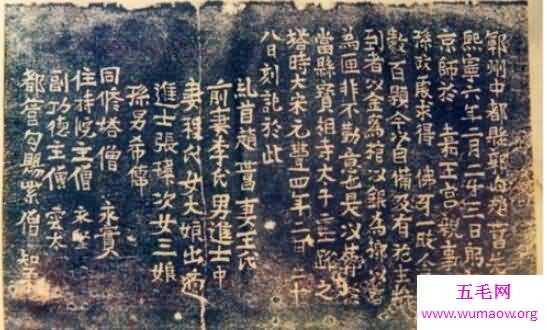 鄆州中都縣郭內趙世昌先
熙寧六年二月二十三日躬
京師於嘉王宮親事
孫政處求得佛牙一
數百顆今則自備及有施主
到者以金為棺以銀為槨以
為匣非不勤意也是以葬於
當縣寶相寺大千三路之
塔時大宋元豐四年二月二十
八日刻記於此
糺首趙世昌妻王氏
前妻李氏男進士中
妻程氏女大娘出適
進士張 次女三娘
孫男希傳
同修塔僧 永
住持院主僧 永
副功德主僧 雲太
都管勾賜紫僧 知
五毛网
www.wumaow.org